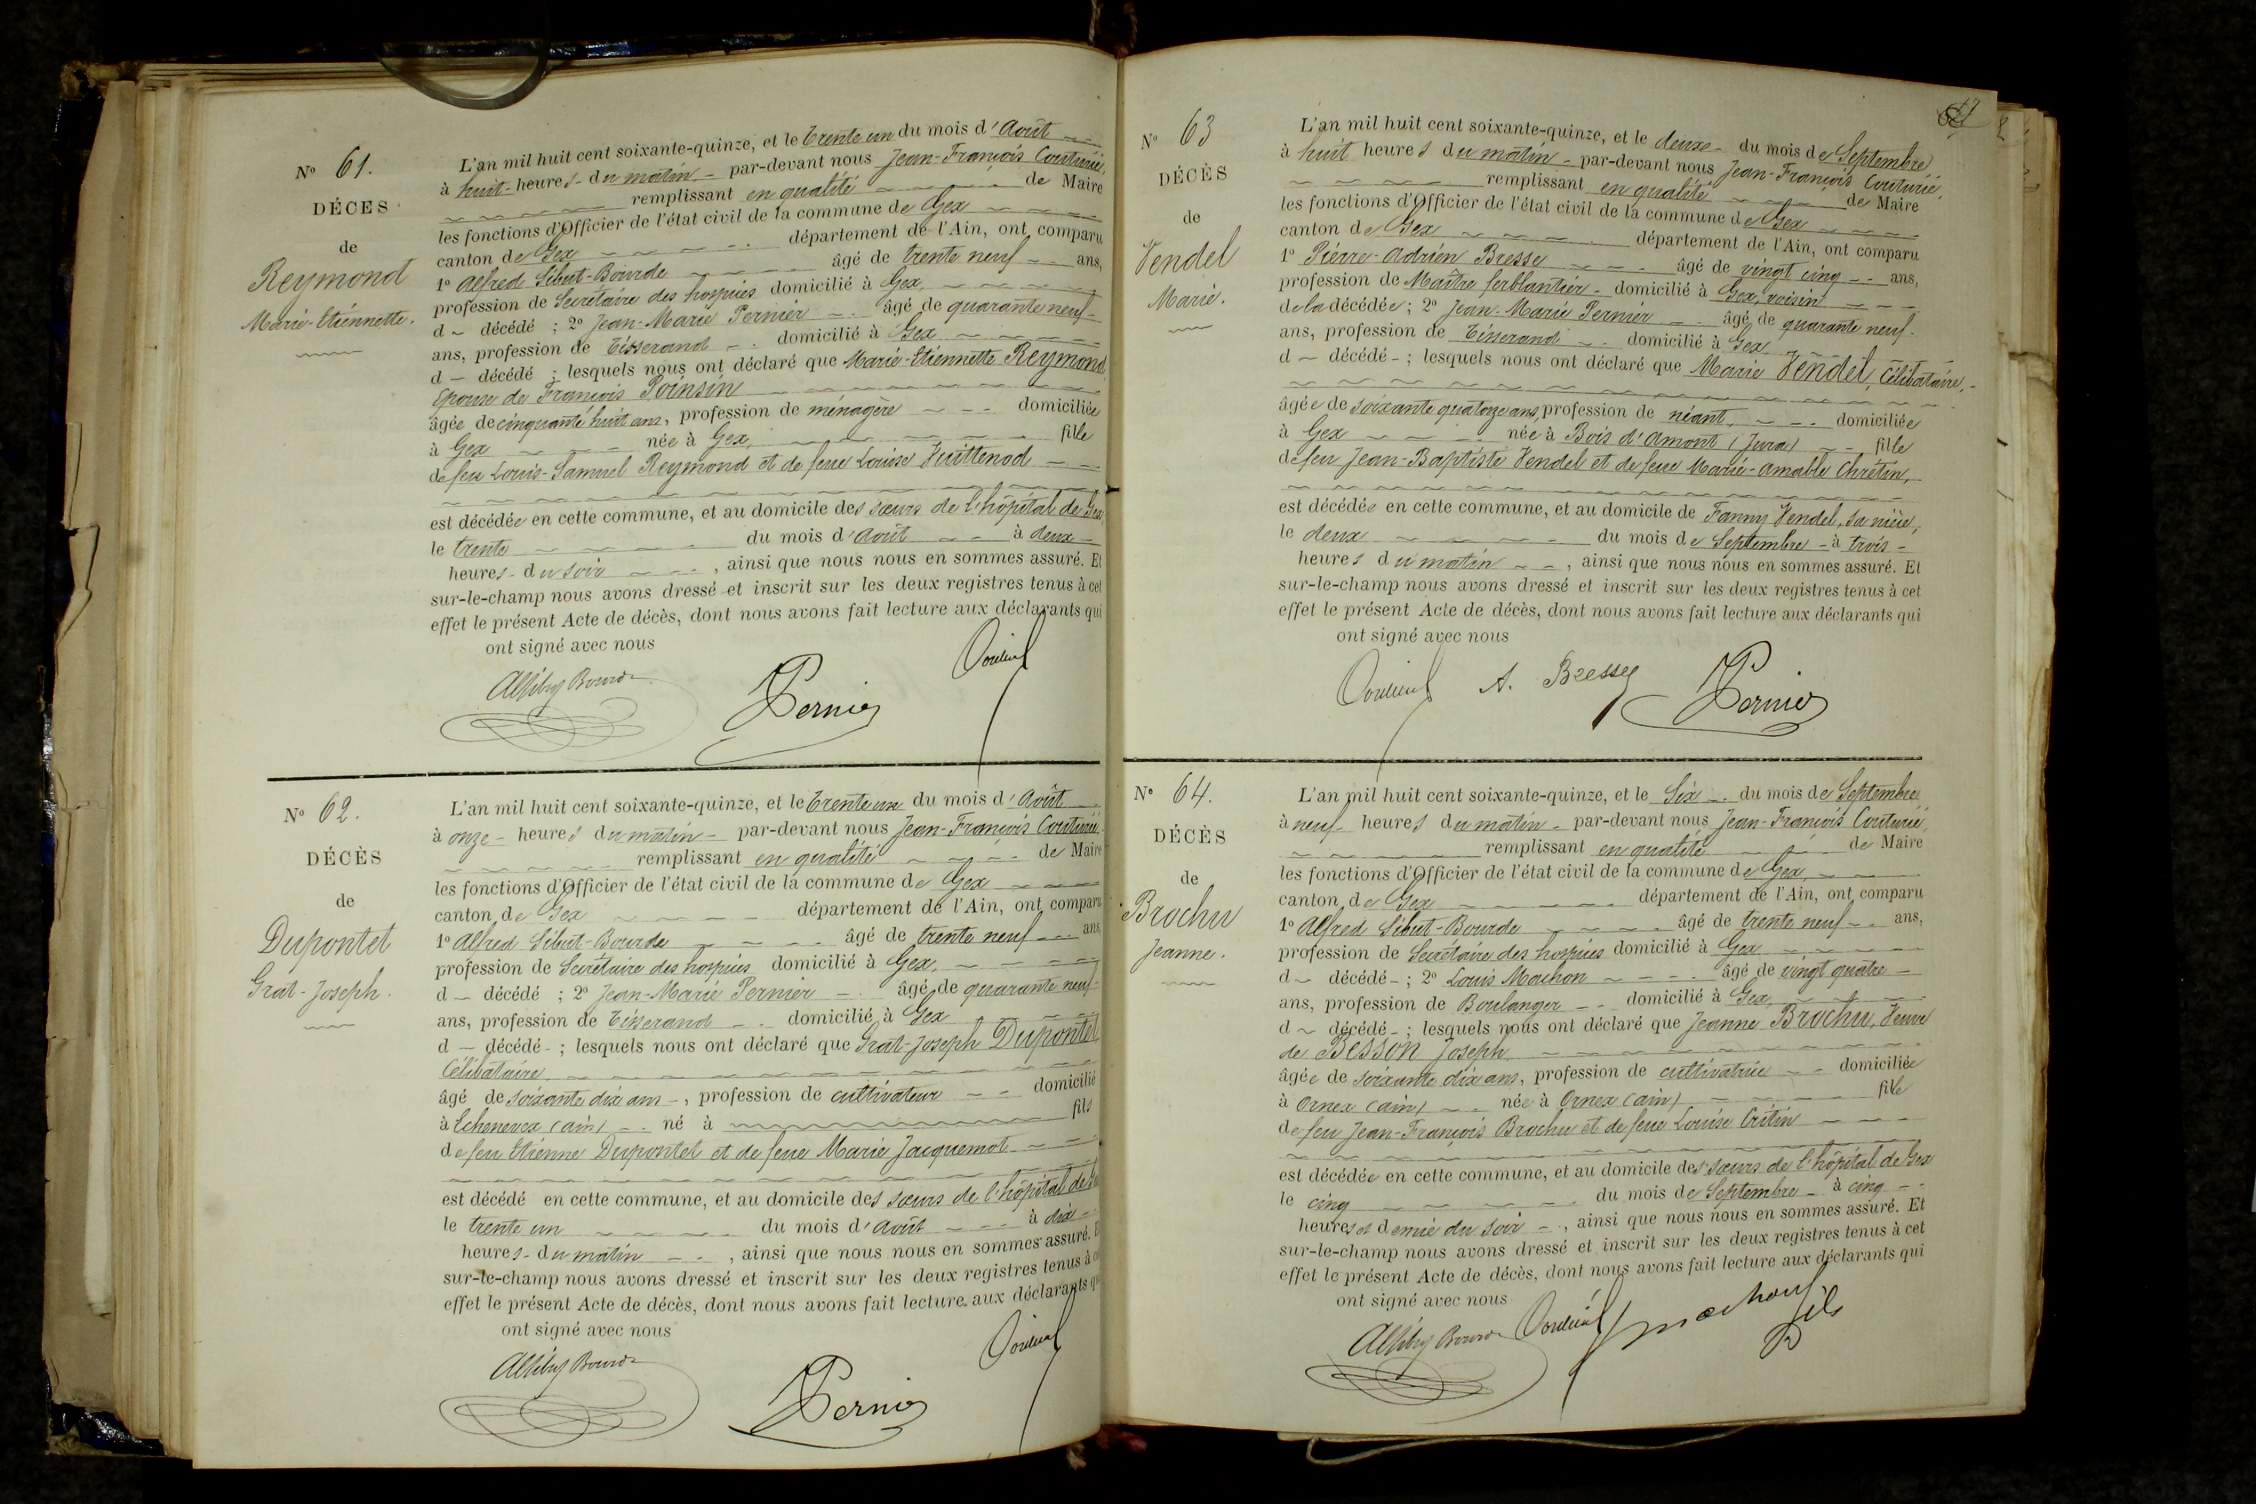 N° 61.
DÉCES
de
Reymond
Marie-Etiennette.
L'an mil huit cent soixante-quinze, et le trente un du mois d'Août
à huit heures du matin par-devant nous Jean-François Couturié,
remplissant en qualité de Maire
les fonctions d'Officier de l'état civil de la commune de Gex
canton de Gex département de l'Ain, ont comparu
1° Alfred Sibut-Bourde âgé de trente neuf ans,
profession de Secrétaire des hospices domicilié à Gex,
d décédé ; 2° Jean-Marie Pernier âgé de quarante neuf
ans, profession de Tisserand domicilié à Gex
d décédé ; lesquels nous ont déclaré que Marie-Etiennette Reymond,
épouse de François Poinsin
âgée de cinquante huit ans, profession de ménagère domiciliée
à Gex née à Gex, fille
de feu Louis-Samuel Reymond et de feue Louise Vuittenod
est décédée en cette commune, et au domicile des sœurs de l'hôpital de Gex
le trente du mois d'Août à deux
heures du soir , ainsi que nous nous en sommes assuré. Et
sur-le-champ nous avons dressé et inscrit sur les deux registres tenus à cet
effet le présent Acte de décès, dont nous avons fait lecture aux déclarants qui
ont signé avec nous
Pernier
N° 62.
DÉCÈS
de
Dupontet
Grat-Joseph.
L'an mil huit cent soixante-quinze, et le trente un du mois d'Août
à onze heures du matin par-devant nous Jean-François Couturié,
remplissant en qualité de Maire
les fonctions d'Officier de l'état civil de la commune de Gex
canton de Gex département de l'Ain, ont comparu
1° Alfred Sibut-Bourde âgé de trente neuf ans
profession de Secrétaire des hospices domicilié à Gex,
d décédé ; 2° Jean-Marie Pernier âgé de quarante neuf
ans, profession de Tisserand domicilié à Gex
d décédé ; lesquels nous ont déclaré que Grat-Joseph Dupontet,
Célibataire,
âgé de soixante dix ans, profession de cultivateur domicilié
à Echenevex (Ain) né à fils
de feu Etienne Dupontet et de feue Marie Jacquemot
est décédé en cette commune, et au domicile des sœurs de l'hôpital de
le trente un du mois d'Août à dix
heures du matin , ainsi que nous nous en sommes assuré. E
sur-le-champ nous avons dressé et inscrit sur les deux registres tenus à c
effet le présent Acte de décès, dont nous avons fait lecture aux déclarants q
ont signé avec nous
Pernier
N° 63
DÉCÈS
de
Vendel
Marie.
L'an mil huit cent soixante-quinze, et le deux du mois de Septembre
à huit heures du matin par-devant nous Jean-François Couturié,
remplissant en qualité de Maire
les fonctions d'Officier de l'état civil de la commune de Gex
canton de Gex département de l'Ain, ont comparu
1° Pierre-Adrien Bresse âgé de vingt cinq ans,
profession de Maître ferblantier domicilié à Gex, voisin
de la décédée ; 2° Jean-Marie Pernier âgé de quarante neuf
ans, profession de Tisserand domicilié à Gex
d décédé ; lesquels nous ont déclaré que Marie Vendel, Célibataire,
âgée de soixante quatorze ans, profession de néant, domiciliée
à Gex née à Bois d'Amont (Jura) fille
de feu Jean-Baptiste Vendel et de feue Marie-Amable Chrétin,
est décédée en cette commune, et au domicile de Fanny Vendel, sa nièce,
le deux du mois de Septembre à trois
heures du matin , ainsi que nous nous en sommes assuré. Et
sur-le-champ nous avons dressé et inscrit sur les deux registres tenus à cet
effet le présent Acte de décès, dont nous avons fait lecture aux déclarants qui
ont signé avec nous
A. Bresse Pernier
N° 64.
DÉCÈS
de
Brochu
Jeanne.
L'an mil huit cent soixante-quinze, et le Six du mois de Septembre
à neuf heures du matin par-devant nous Jean-François Couturié,
remplissant en qualité de Maire
les fonctions d'Officier de l'état civil de la commune de Gex,
canton de Gex département de l'Ain, ont comparu
1° Alfred Sibut-Bourde âgé de trente neuf ans,
profession de Secrétaire des hospices domicilié à Gex
d décédé ; 2° Louis Machon âgé de vingt quatre
ans, profession de Boulanger domicilié à Gex,
d décédé ; lesquels nous ont déclaré que Jeanne Brochu, Veuve
de Besson Joseph
âgée de soixante dix ans, profession de cultivatrice domiciliée
à Ornex (Ain) née à Ornex (Ain) fille
de feu Jean-François Brochu et de feue Louise Critin
est décédée en cette commune, et au domicile des sœurs de l'hôpital de Gex
le cinq du mois de Septembre à cinq
heures et demie du soir , ainsi que nous nous en sommes assuré. Et
sur-le-champ nous avons dressé et inscrit sur les deux registres tenus à cet
effet le présent Acte de décès, dont nous avons fait lecture aux déclarants qui
ont signé avec nous
machon fils